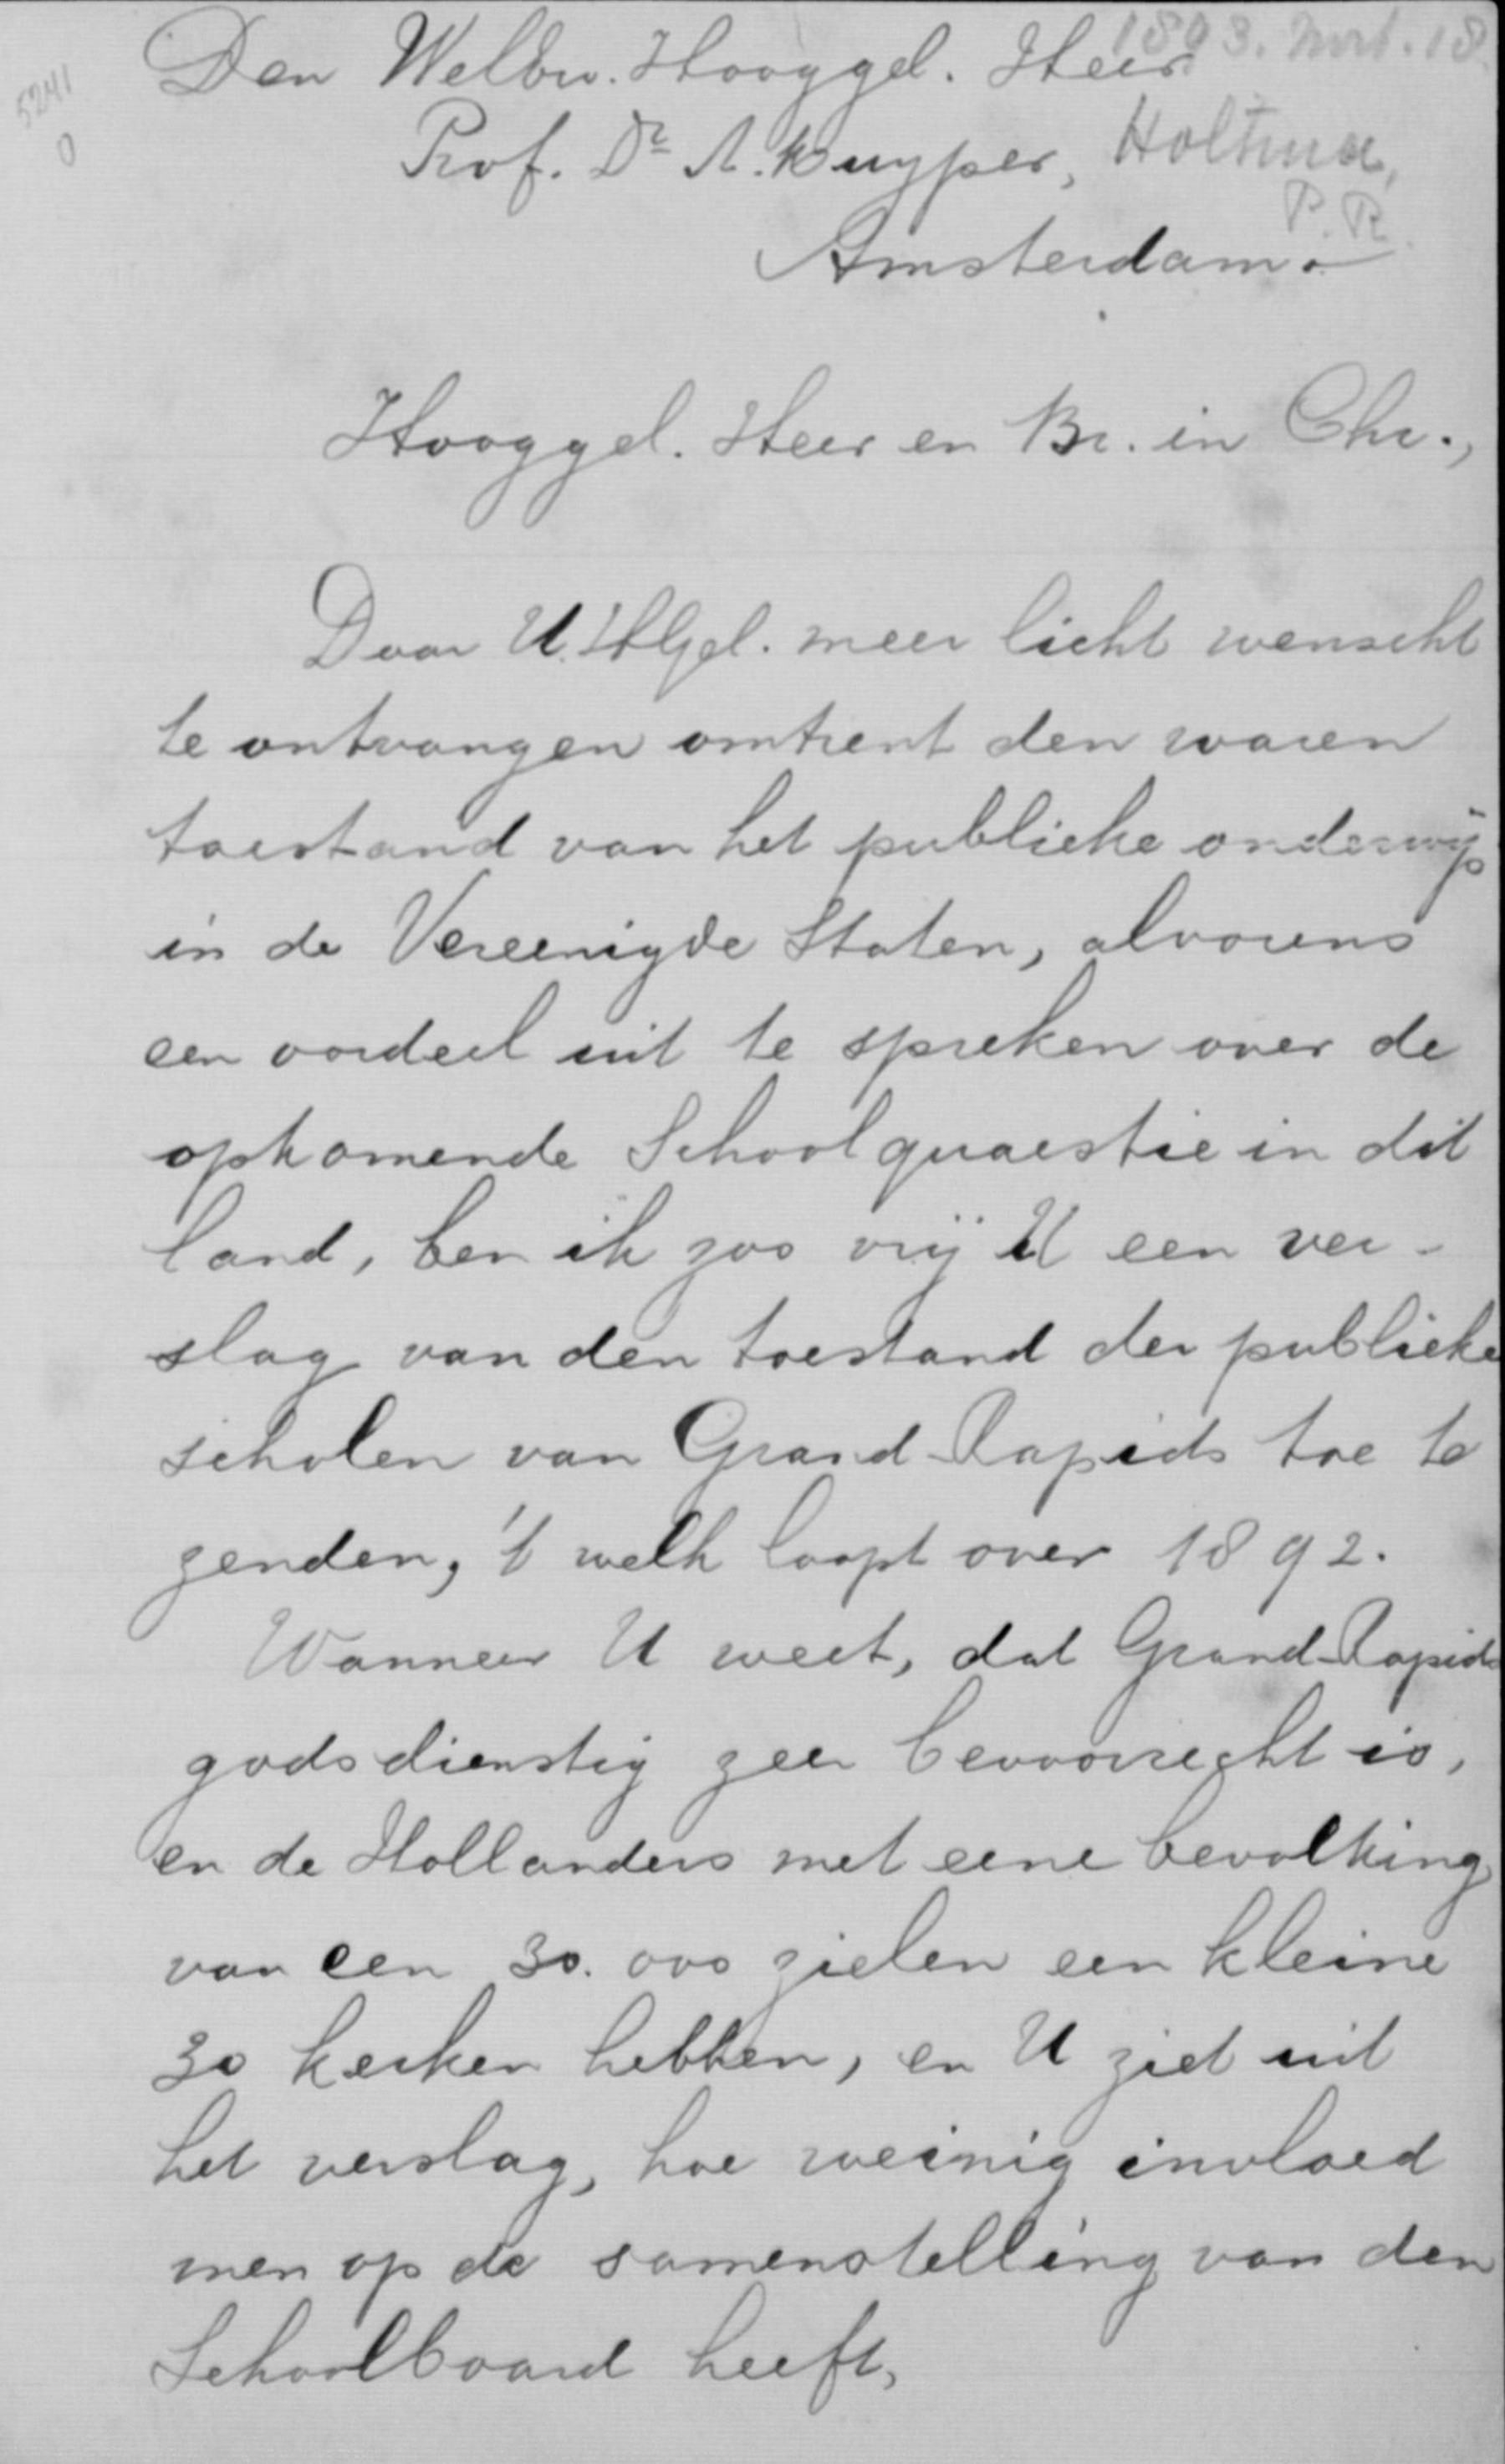 1893. Mrt. 18.
5241
0
Den Welew. Hooggel. Heer
Prof. Dr A. Kuyper,
Holtman,
P. R.
Amsterdam.
Hooggel. Heer en Br. in Chr.,
Daar U. HGel. meer licht wenscht
te ontvangen omtrent den waren
toestand van het publieke onderwijs
in de Vereenigde Staten, alvorens
een oordeel uit te spreken over de
opkomende Schoolquaestie in dit
land, ben ik zoo vrij U een ver-
slag van den toestand der publieke
scholen van Grand-Rapids toe te
zenden, 't welk loopt over 1892.
Wanneer U weet, dat Grand-Rapids
godsdienstig zeer bevoorrecht is,
en de Hollanders met eene bevolking
van een 30.000 zielen een kleine
30 kerken hebben, en U ziet uit
het verslag, hoe weinig invloed
men op de samenstelling van den
Schoolboard heeft,